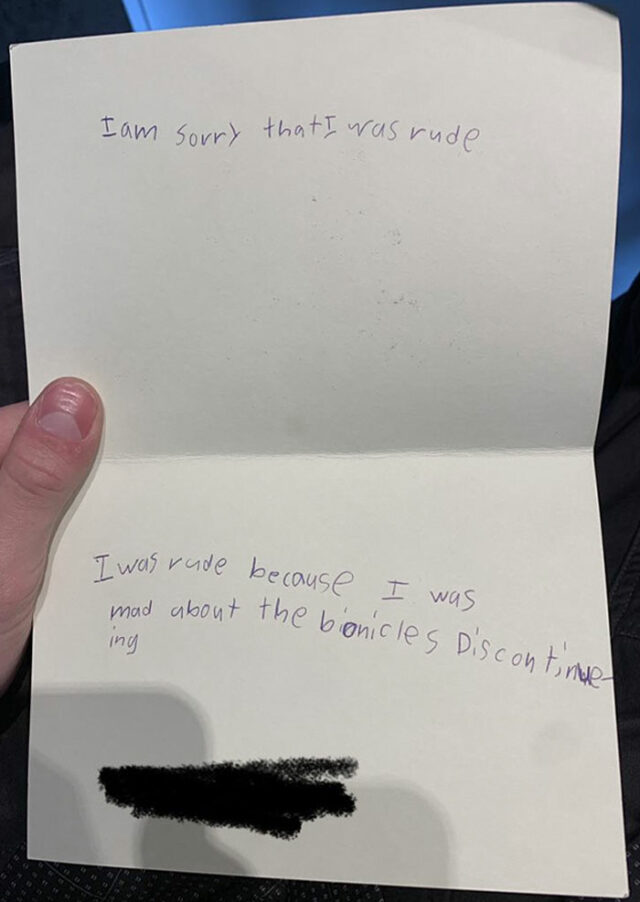 I am sorry that I was rude
I was rude because I was
mad about the bionicles Discontinue-
ing